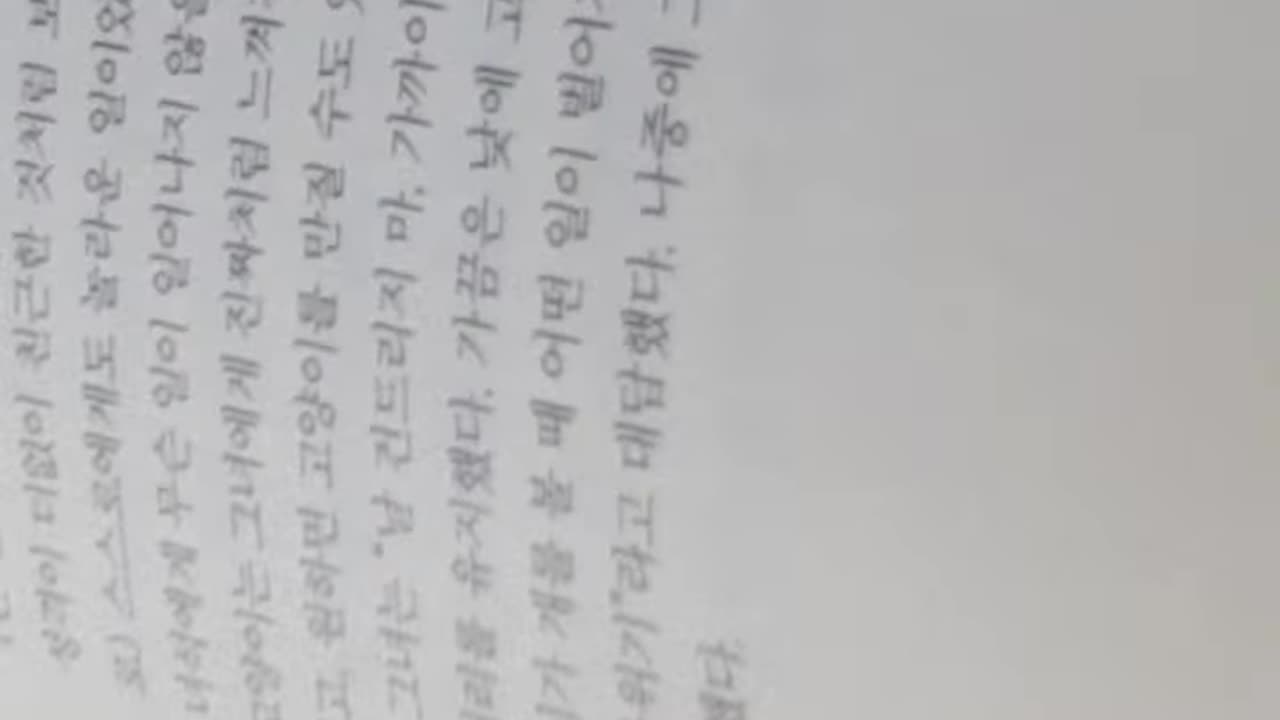 송깍이 디없이 친근한 것처럼
로) 스스로에게도 놀라운 일이었
너석에게 무슨 일이 일어나지 않을
고양이는 그녀에게 진짜처럼 느껴
고, 원하면 고양이를 만질 수도
그녀는 "날 건드리지 마. 가까이
리를 유지했다. 가끔은 낮에 고
가 개를 볼 때 어떤 일이 벌어
위기"라고 대답했다. 나중에
했다.